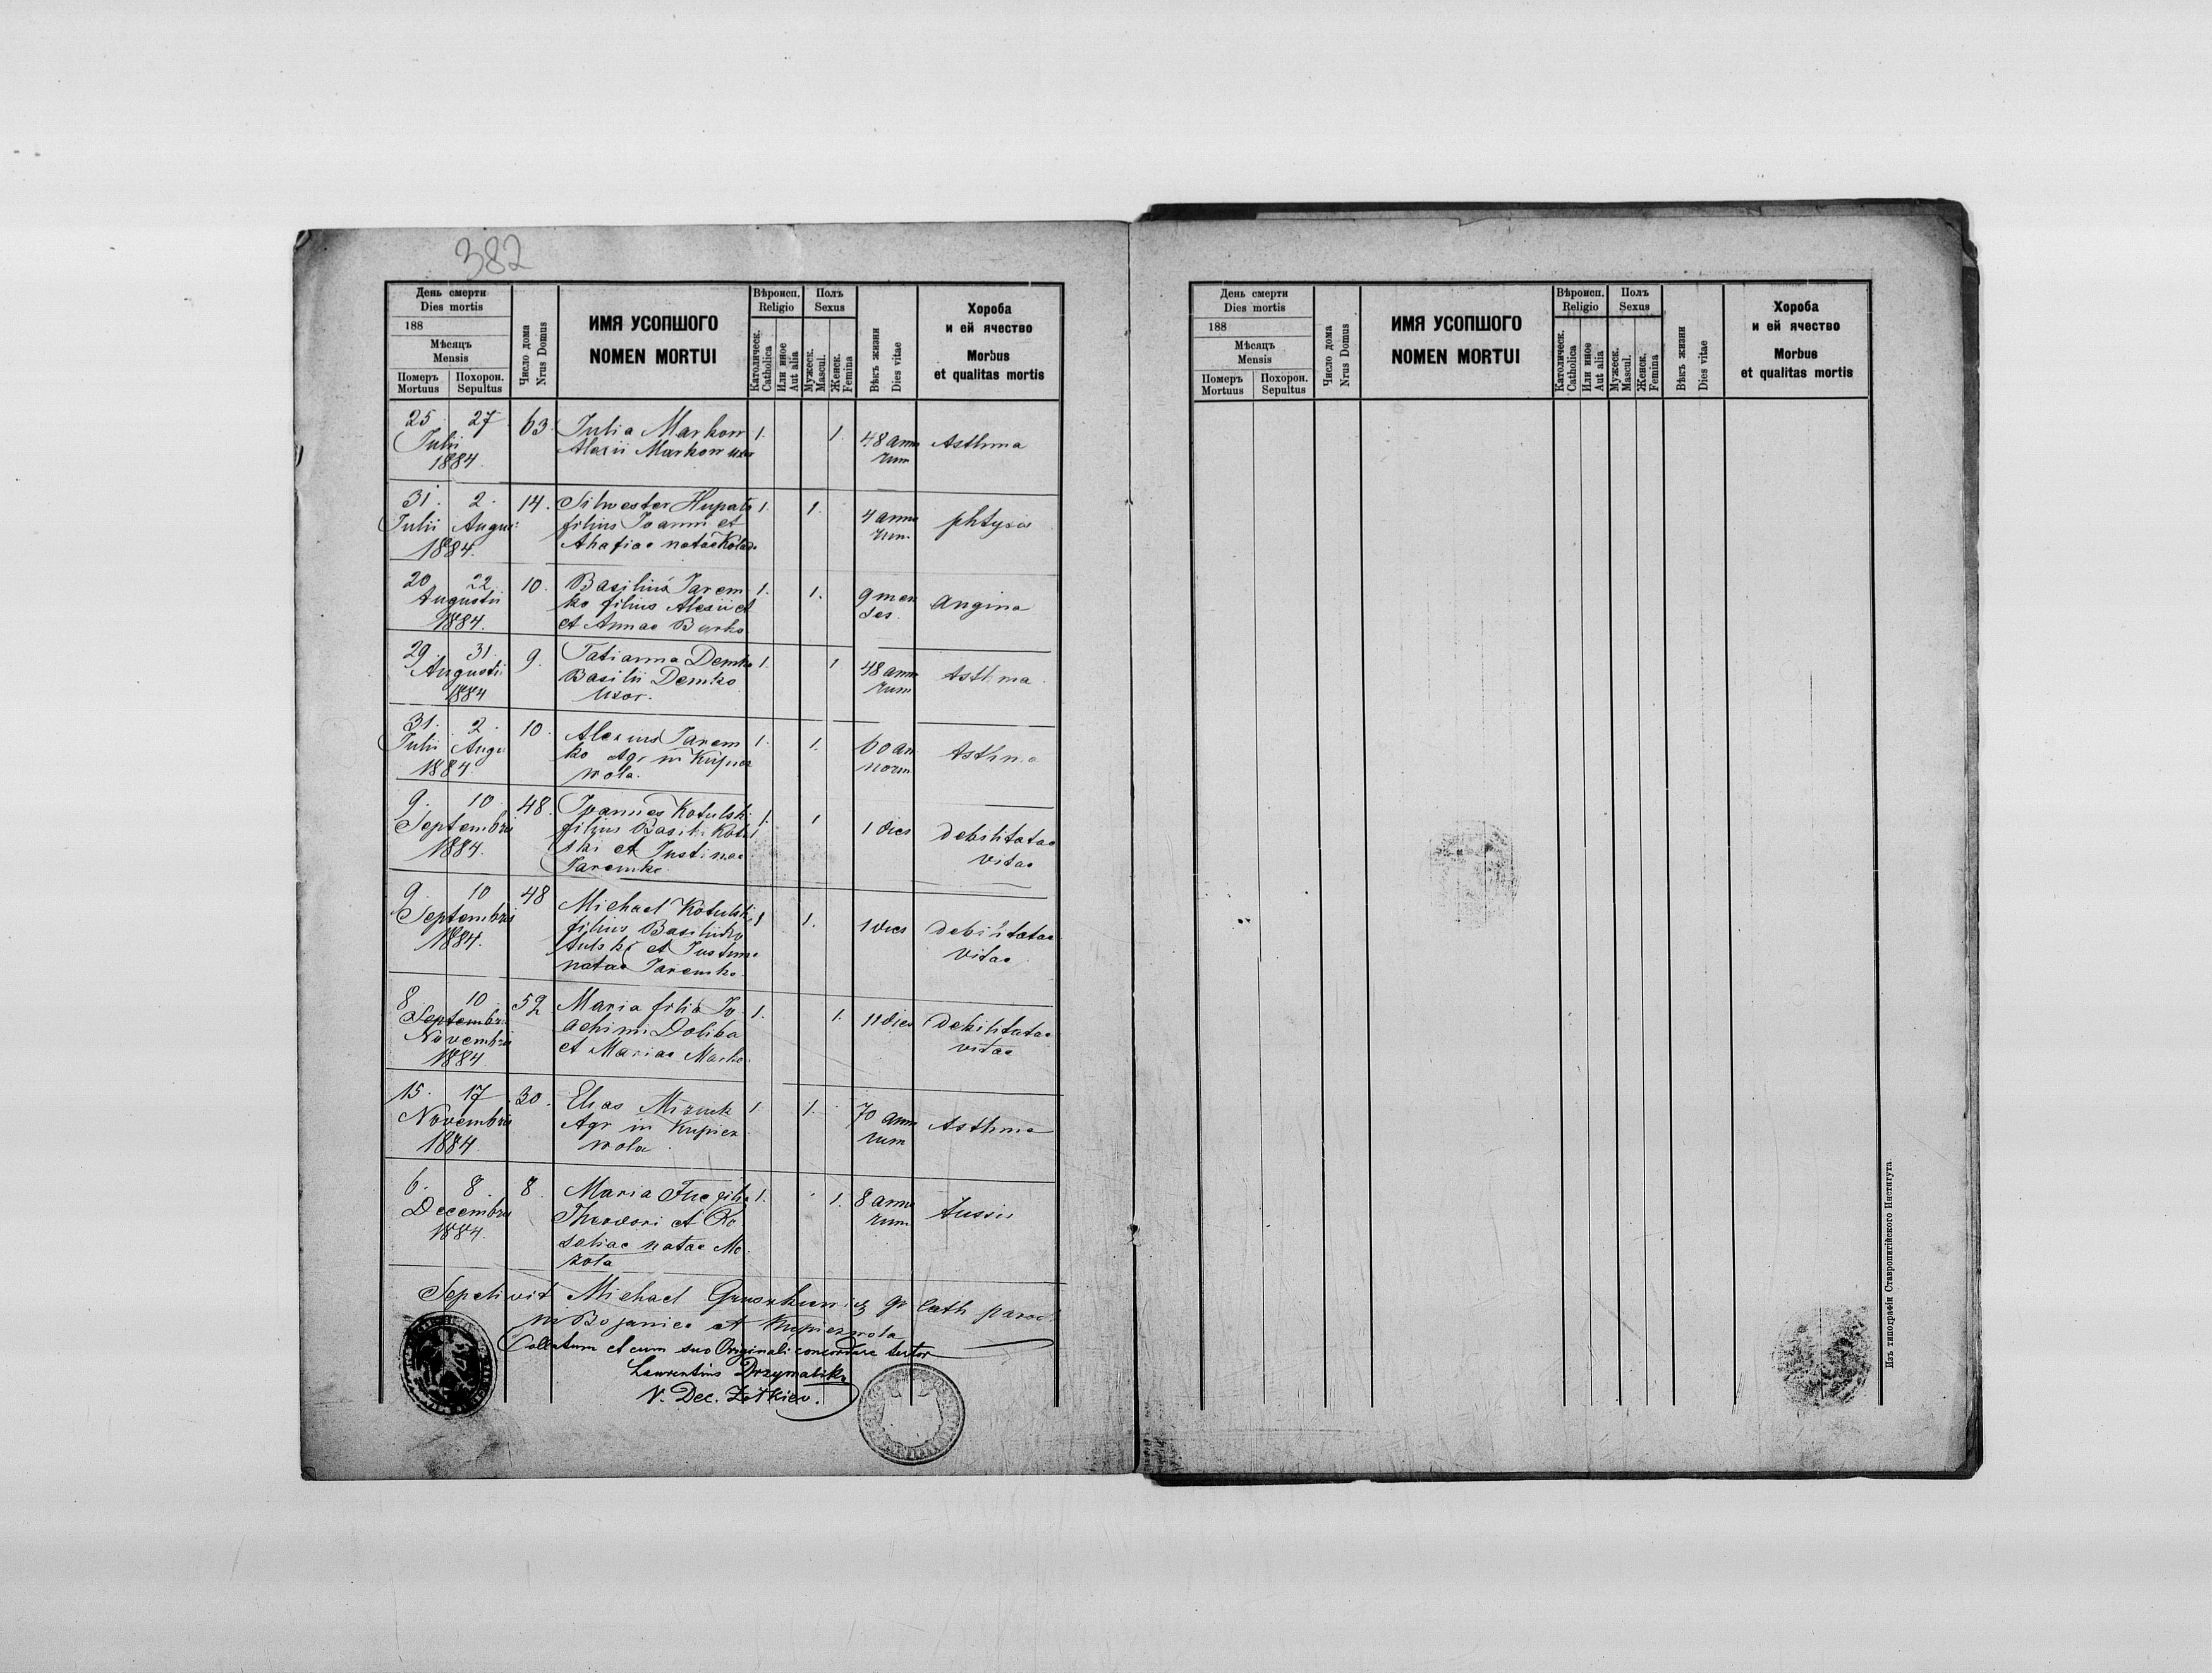 382
День смерти
Dies mortis
188
Мѣсяцъ
Mensis
Померъ
Mortuus
Похорон.
Sepultus
Число дома
Nrus Domus
ИМЯ УСОПШОГО
NOMEN MORTUI
Вѣроисп.
Religio
Католическ.
Catholica
Или иное
Aut alia
Полъ
Sexus
Мужеск.
Mascul.
Женск.
Femina
Вѣкъ жизни
Dies vitae
Хороба
и ей ячество
Morbus
et qualitas mortis
25. 27. 63. Julia Markow 1. 1. 48 anno Asthma
Julii Alexii Markow uxor rum
1884.
31. 2. 14. Silvester Hupalo 1. 1. 4 anno phtysis
Julii Augus filius Joanni et rum
1884. Ahafiae natae
20. 22. 10. Basilius Jarem 1. 1. 9 men angina
Augustii ko filius Alexii et ses
1884. et Annae Burko
29. 31. 9. Tatianna Demko 1. 1 48 anno Asthma
Augustii Basilii Demko rum
1884 uxor.
31. 2. 10. Alexius Jarem 1. 1. 60 an Asthma
Julii Augu ko Agr in Kupicz norum
1884. wola.
9. 10 48. Joannes Kotulski 1. 1 1 dies debilitatae
Septembris filius Basilii Kotul vitae
1884. ski et Justinae
Jaremko
9. 10 48 Michael Kotulski 1 1. 1 dies debilitatae
Septembris filius Basilii Ko vitae
1884. tulski et Justinae
natae Jaremko
8 10 52 Maria filia Jo 1. 1. 11 dies debilitatae
Septembris achimi Doliba vitae
Novembris et Mariae Marko
1884
15. 17 30. Elias Mizuik 1. 1. 70 anno Asthma
Novembris Agr in Kupicz rum
1884 wola
6. 8. 8. Maria filia 1. 1. 8 anno tussis
Decembris Theodori et Ro rum
1884. saliae natae Me
zola
Sepelivit Michael gr cath paroch
in Bojaniec et Kupiczwola
Collatum et cum suo Originali concordare testor
Laurentius
V. Dec. Żółkiew.
День смерти
Dies mortis
188
Мѣсяцъ
Mensis
Померъ
Mortuus
Похорон.
Sepultus
Число дома
Nrus Domus
ИМЯ УСОПШОГО
NOMEN MORTUI
Вѣроисп.
Religio
Католическ.
Catholica
Или иное
Aut alia
Полъ
Sexus
Мужеск.
Mascul.
Женск.
Femina
Вѣкъ жизни
Dies vitae
Хороба
и ей ячество
Morbus
et qualitas mortis
Изъ типографіи Ставропигійского Института